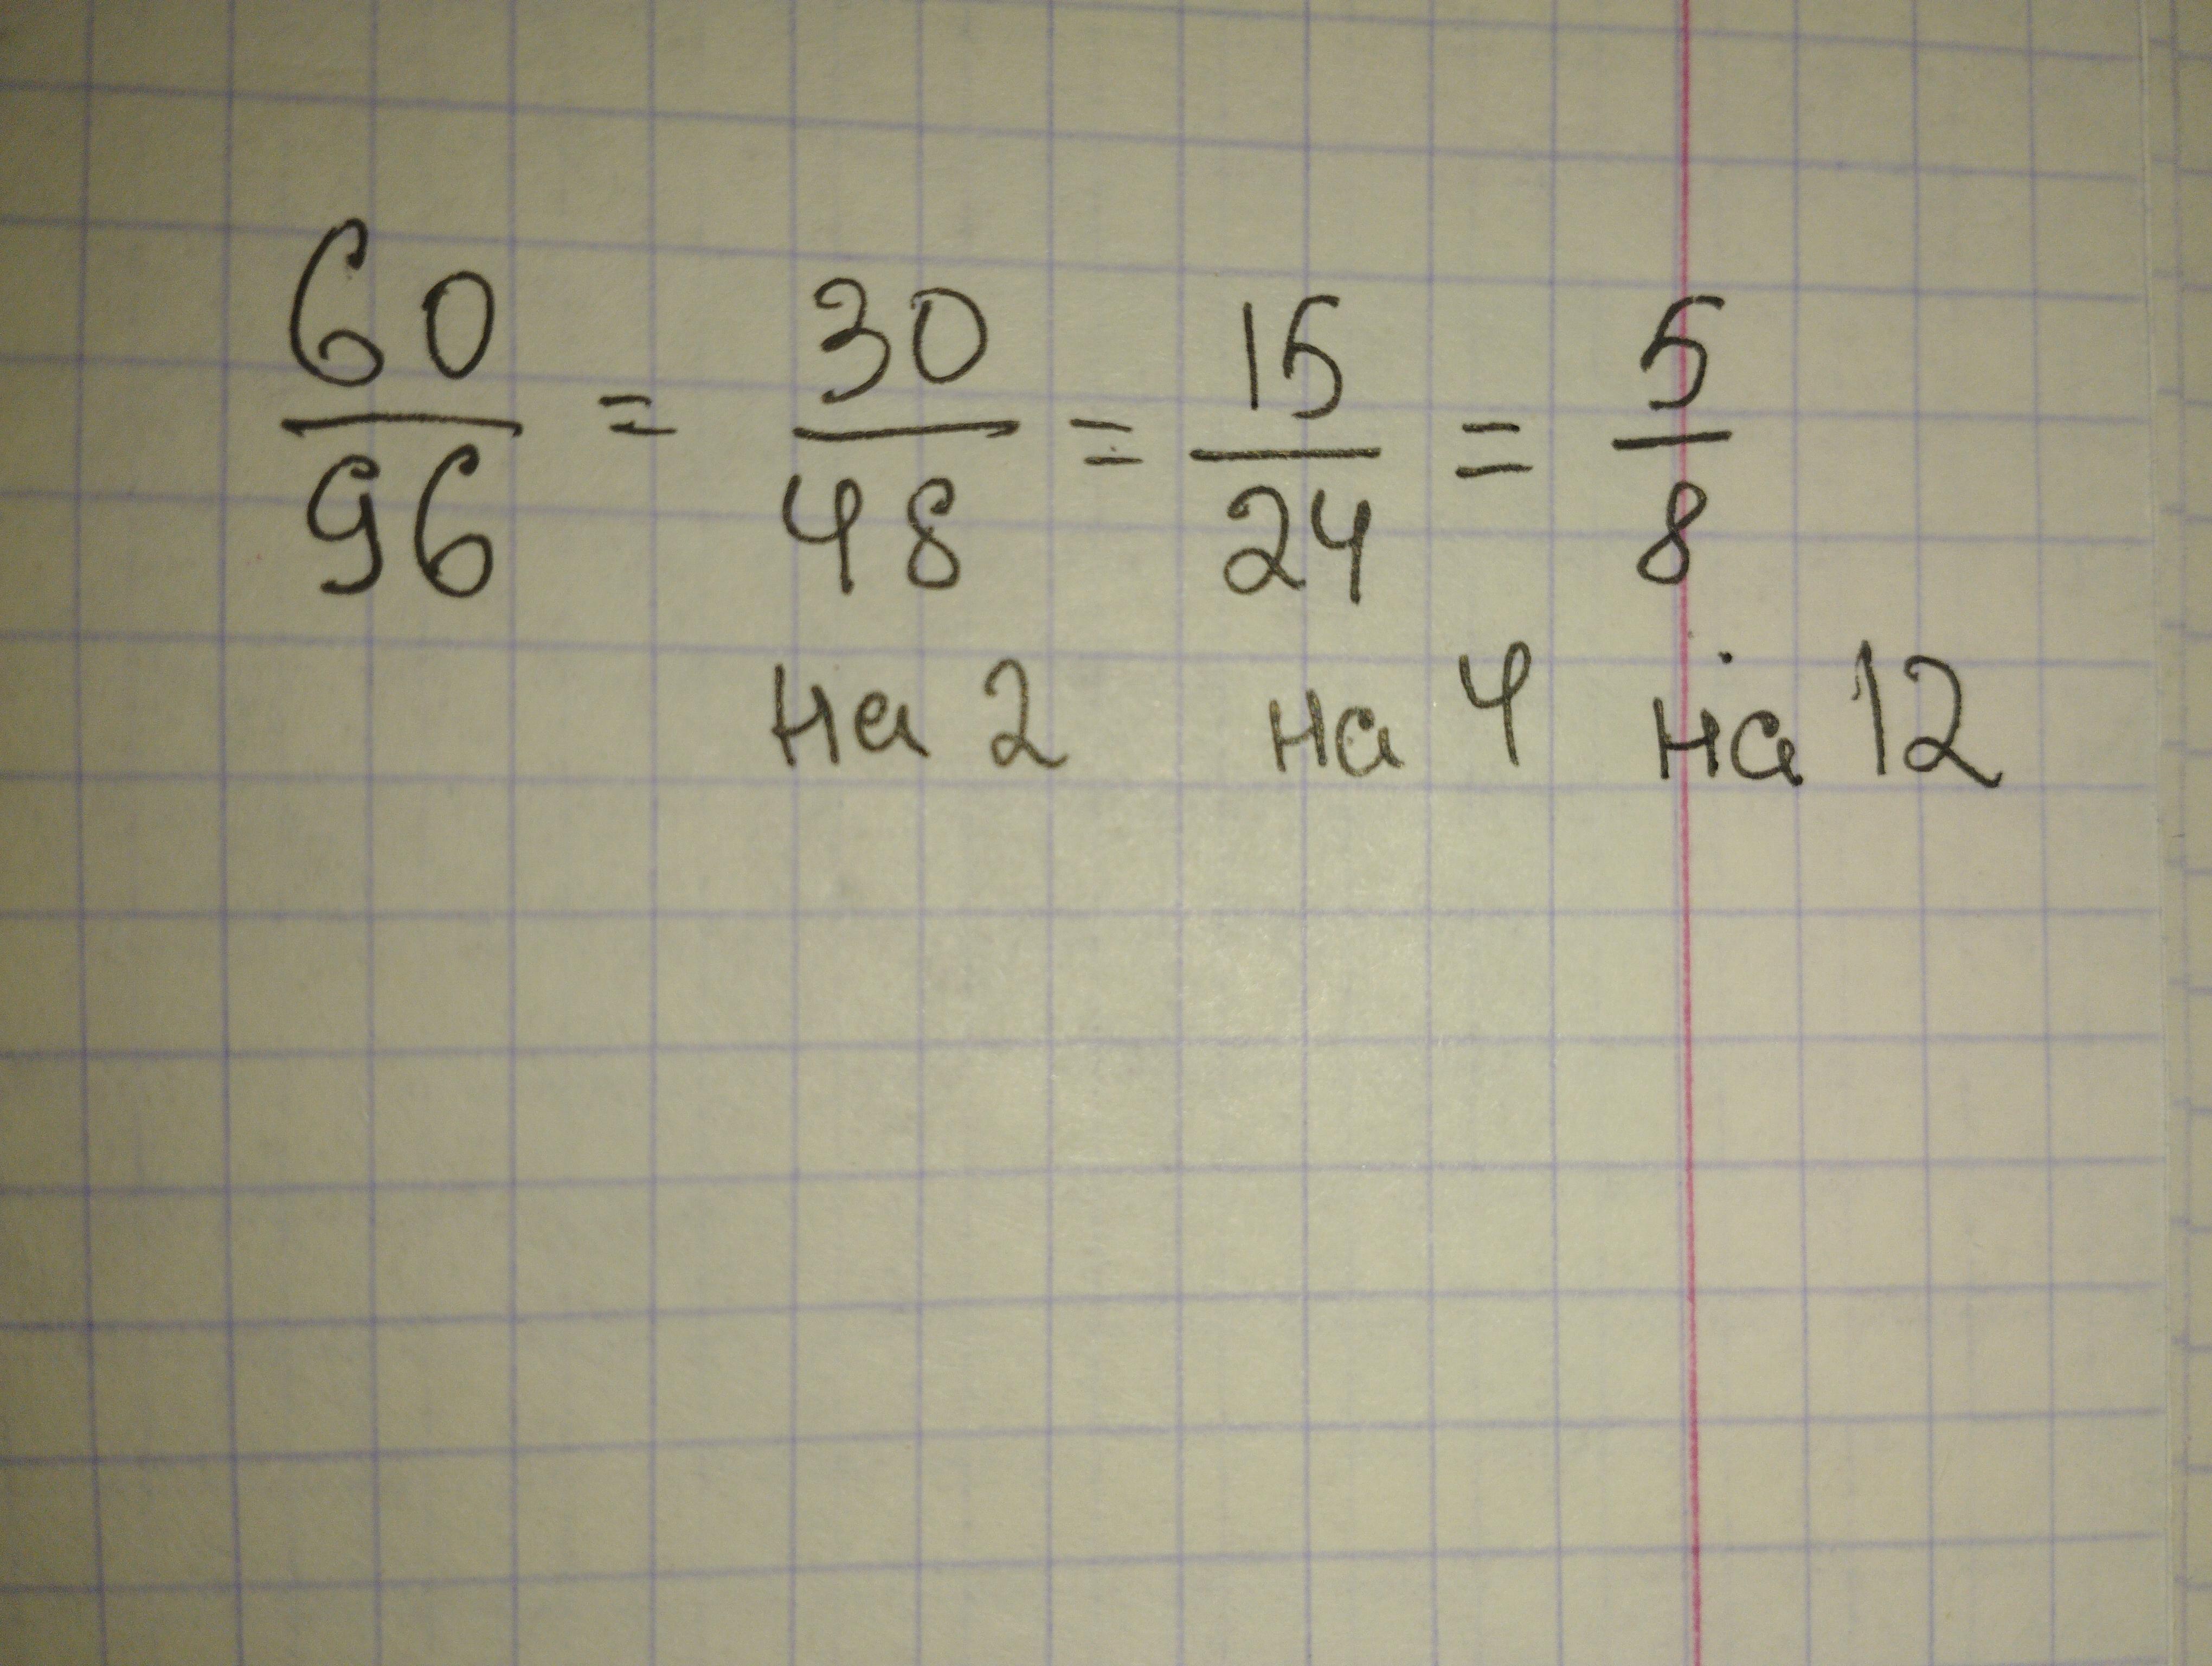 60/96 = 30/48 = 15/24 = 5/8
на 2 на 4 на 12